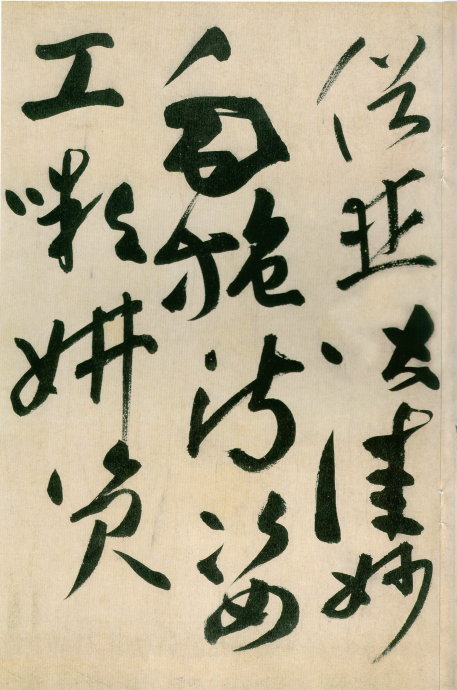 俗並皆佳妙
毛施淑姿
工嚬妍笑